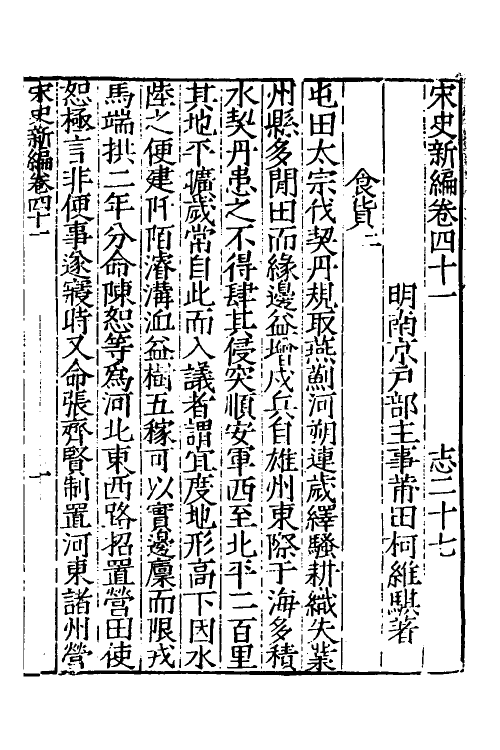 宋史新編卷四十一　志二十七
明南京戶部主事莆田柯維騏著
食貨二
屯田太宗伐契丹規取燕薊河朔連歲繹騷耕織失業
州縣多閒田而緣邊益增戍兵自雄州東際于海多積
水契丹患之不得肆其侵突順安軍西至北平二百里
其地平壙歲常自此而入議者謂宜度地形高下因水
陸之便建阡陌濬溝洫益樹五稼可以實邊廩而限戎
馬端拱二年分命陳恕等為河北東西路招置營田使
恕極言非便事遂寢時又命張齊賢制置河東諸州營
宋史新編卷四十一　一